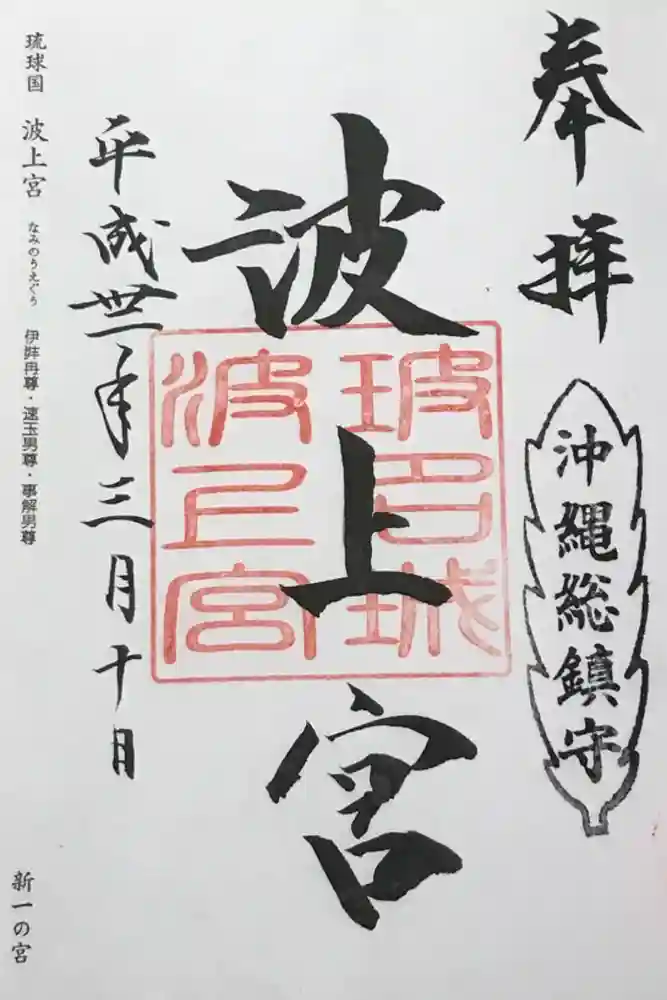 奉拝
沖縄総鎮守
波上宮
波上宮
平成卅一年三月十日
琉球国 波上宮 なみのうえぐう 伊弉冉尊・速玉男尊・事解男尊
新一の宮